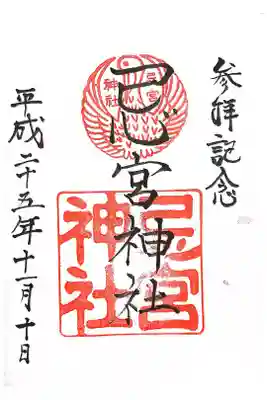 参拝記念
忌宮
神社
忌宮神社
忌宮
神社
平成二十五年十一月十日